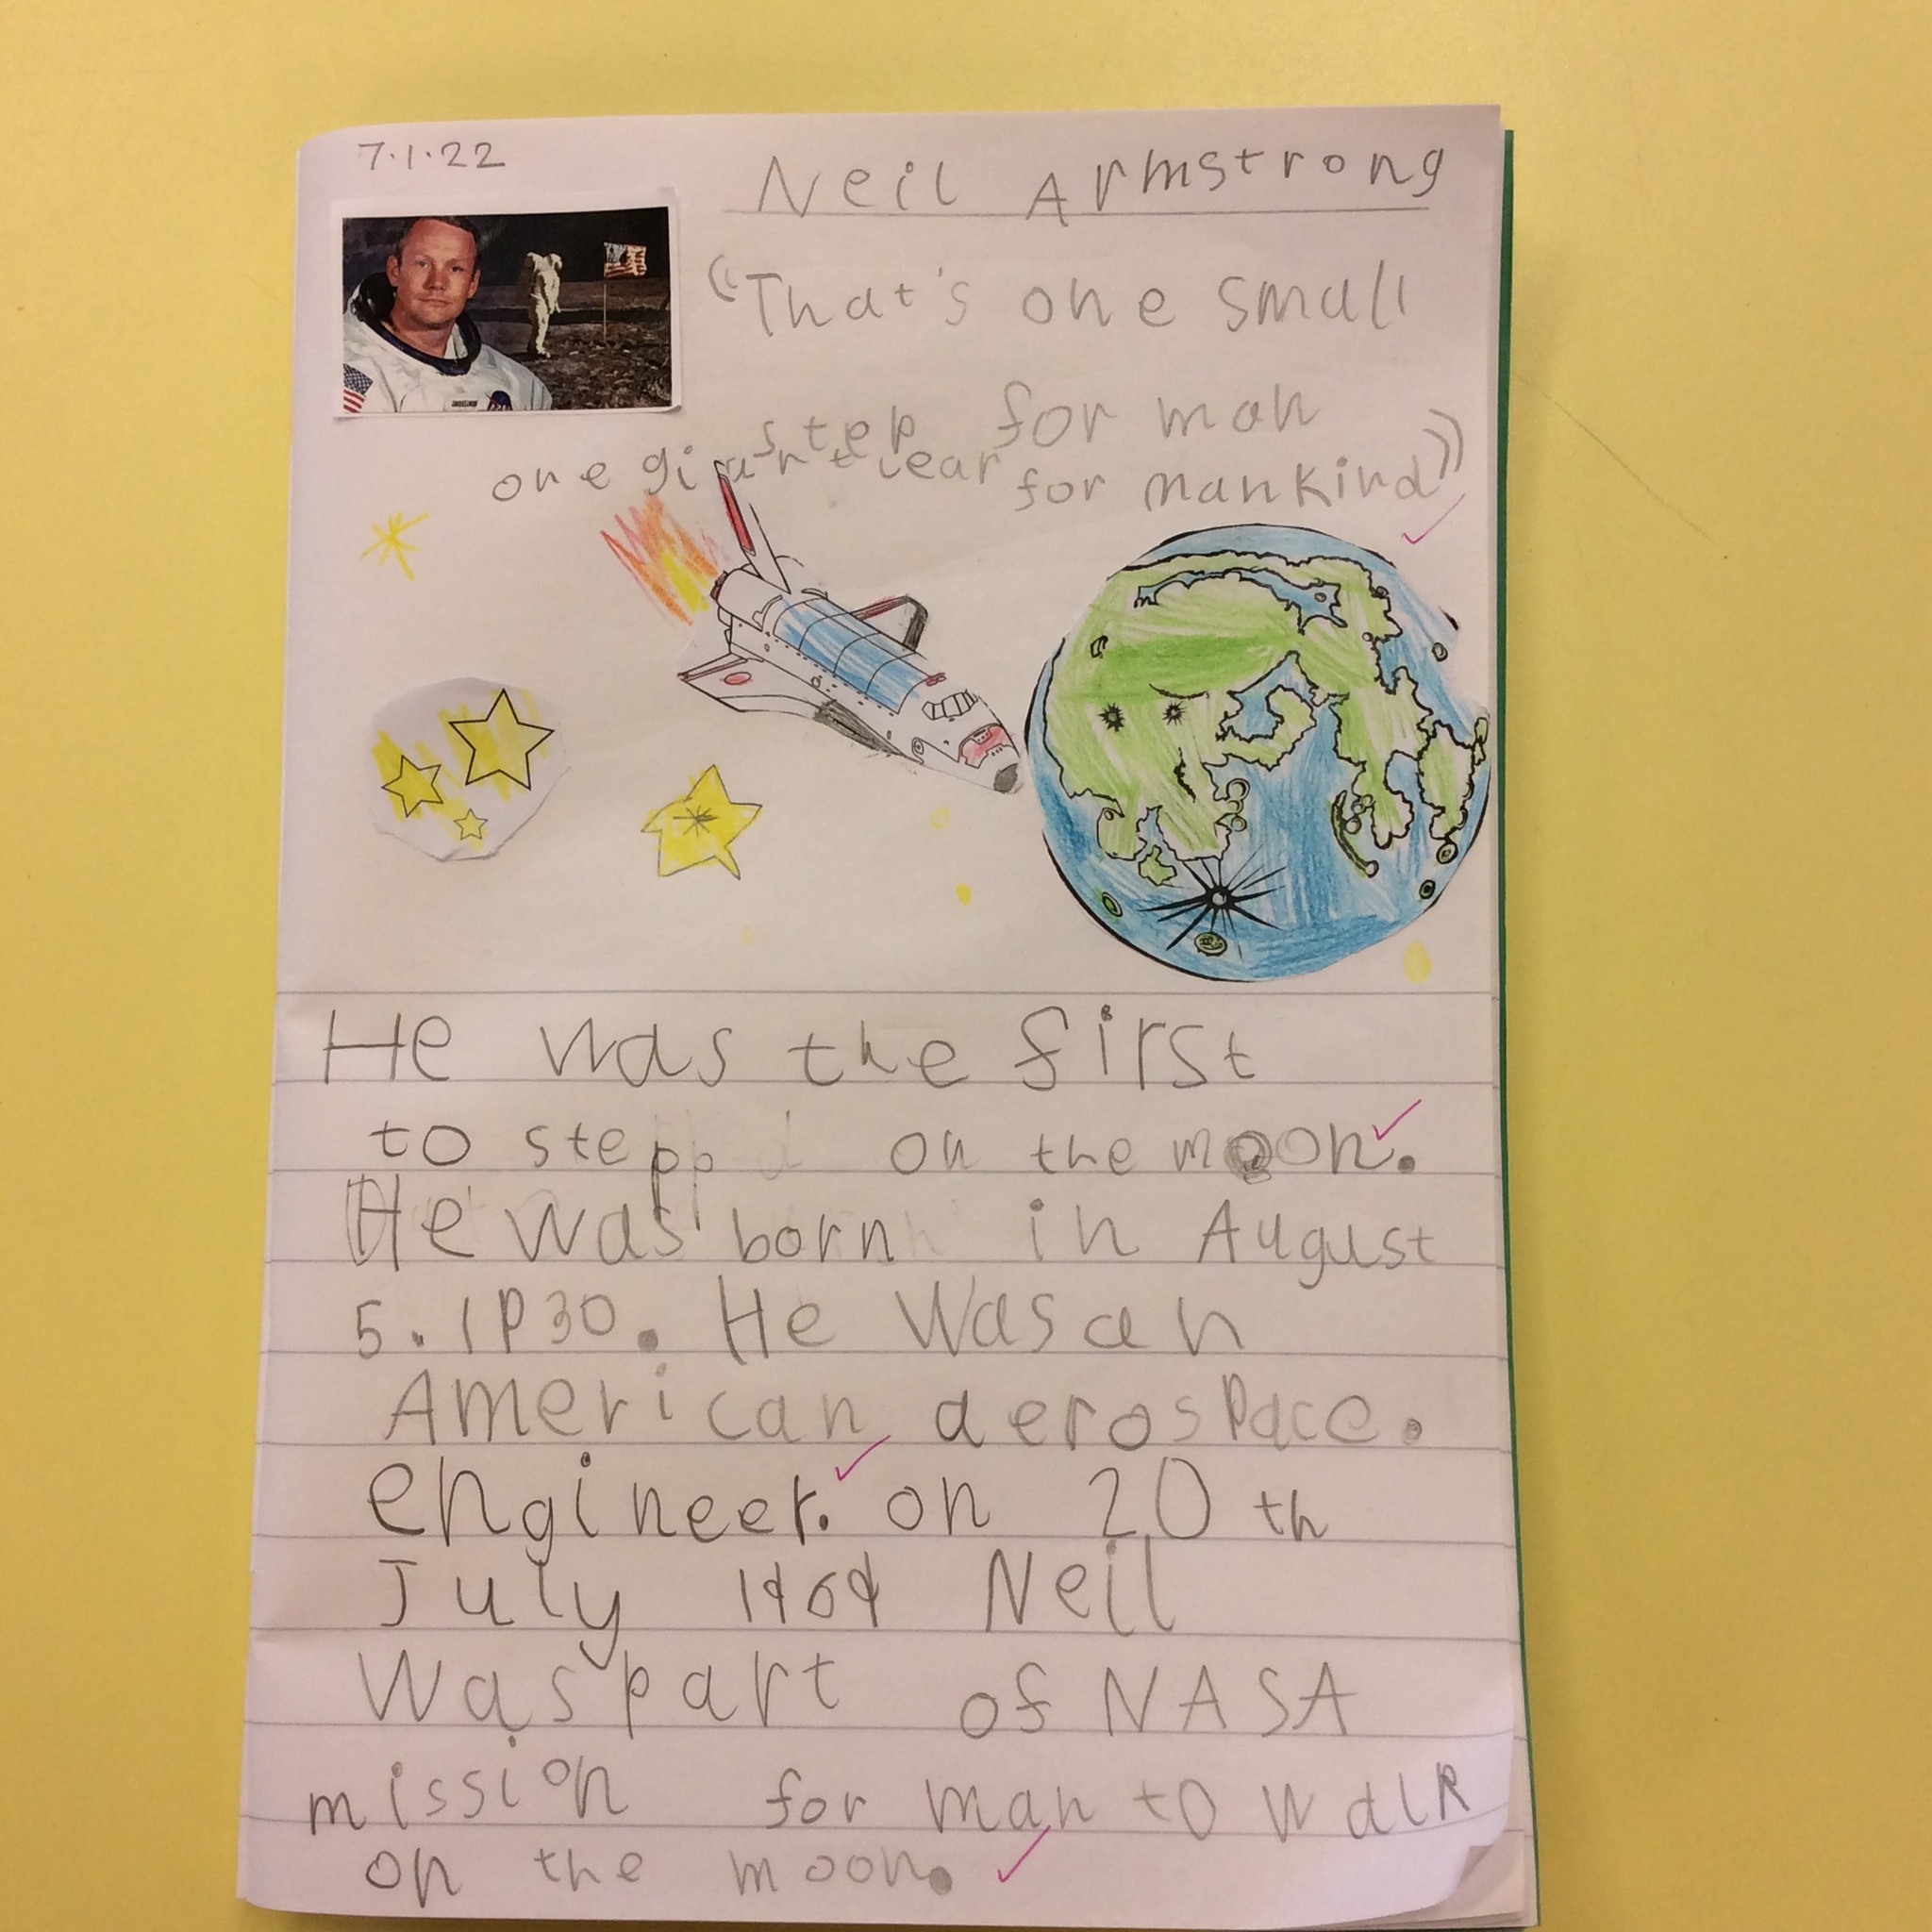 7.1.22
Neil Armstrong
"That's one small
step for man
one giant leap for mankind"
He was the first
to stepp on the moon.
He was born in August
5. 1930. He was an
American aerospace.
engineer. on 20 th
July 1969 Neil
was part of NASA
mission for man to walk
on the moon.